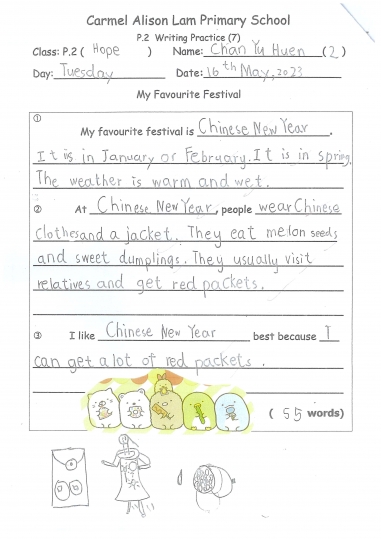 Carmel Alison Lam Primary School
P.2 Writing Practice (7)
Class: P.2 ( Hope ) Name: Chan Yu Huen (2)
Day: Tuesday Date: 16th May, 2023
My Favourite Festival
①
My favourite festival is Chinese New Year.
It is in January or February. It is in spring.
The weather is warm and wet.
② At Chinese New Year, people wear Chinese
clothes and a jacket. They eat melon seeds
and sweet dumplings. They usually visit
relatives and get red packets.
③ I like Chinese New Year best because I
can get a lot of red packets.
( 55 words)